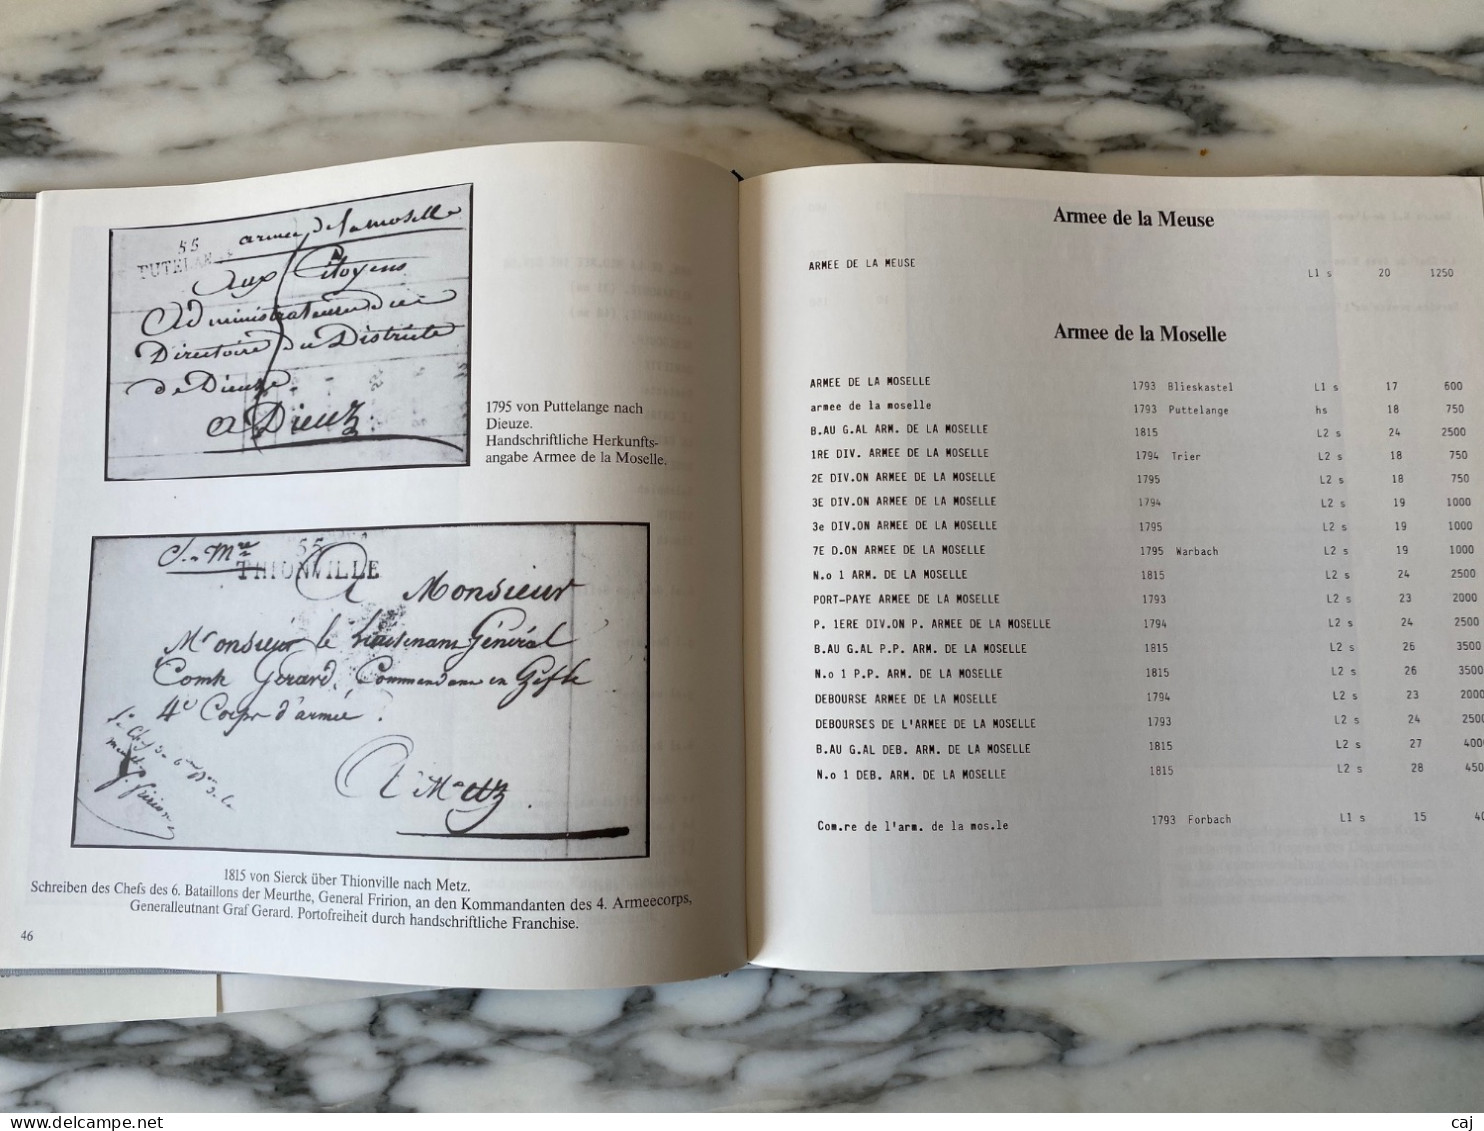 55
PUTELAN
armée de la moselle
Aux Citoyens
Administrateurs du
Directoire du District
de Dieuze
a Dieuz.
1795 von Puttelange nach
Dieuze.
Handschriftliche Herkunfts-
angabe Armee de la Moselle.
S. Mre
55
THIONVILLE
A Monsieur
Monsieur le Lieutenant Général
Comte Gerard, Commandant en Chef le
4e Corps d'armée.
A Metz.
1815 von Sierck über Thionville nach Metz.
Schreiben des Chefs des 6. Bataillons der Meurthe, General Fririon, an den Kommandanten des 4. Armeecorps,
Generalleutnant Graf Gerard. Portofreiheit durch handschriftliche Franchise.
46
Armee de la Meuse
ARMEE DE LA MEUSE L1 s 20 1250
Armee de la Moselle
ARMEE DE LA MOSELLE 1793 Blieskastel L1 s 17 600
armee de la moselle 1793 Puttelange hs 18 750
B.AU G.AL ARM. DE LA MOSELLE 1815 L2 s 24 2500
1RE DIV. ARMEE DE LA MOSELLE 1794 Trier L2 s 18 750
2E DIV.ON ARMEE DE LA MOSELLE 1795 L2 s 18 750
3E DIV.ON ARMEE DE LA MOSELLE 1794 L2 s 19 1000
3e DIV.ON ARMEE DE LA MOSELLE 1795 L2 s 19 1000
7E D.ON ARMEE DE LA MOSELLE 1795 Warbach L2 s 19 1000
N.o 1 ARM. DE LA MOSELLE 1815 L2 s 24 2500
PORT-PAYE ARMEE DE LA MOSELLE 1793 L2 s 23 2000
P. 1ERE DIV.ON P. ARMEE DE LA MOSELLE 1794 L2 s 24 2500
B.AU G.AL P.P. ARM. DE LA MOSELLE 1815 L2 s 26 3500
N.o 1 P.P. ARM. DE LA MOSELLE 1815 L2 s 26 3500
DEBOURSE ARMEE DE LA MOSELLE 1794 L2 s 23 2000
DEBOURSES DE L'ARMEE DE LA MOSELLE 1793 L2 s 24 2500
B.AU G.AL DEB. ARM. DE LA MOSELLE 1815 L2 s 27 4000
N.o 1 DEB. ARM. DE LA MOSELLE 1815 L2 s 28 450
Com.re de l'arm. de la mos.le 1793 Forbach L1 s 15 40
www.delcampe.net
caj